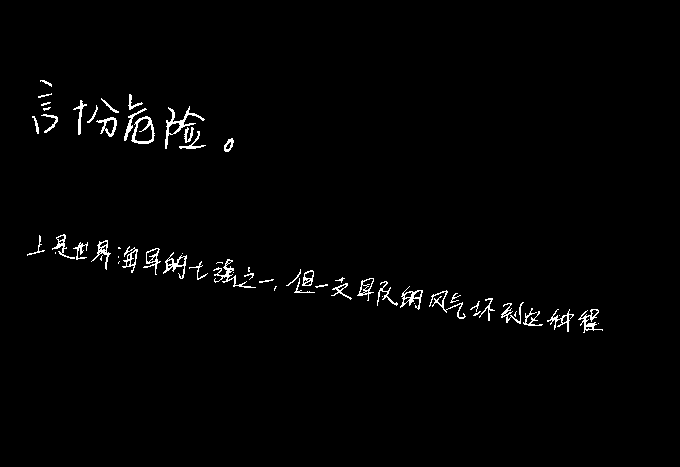 言十分危险。
上是世界海军的七强之一,但一支军队的风气坏到这种程